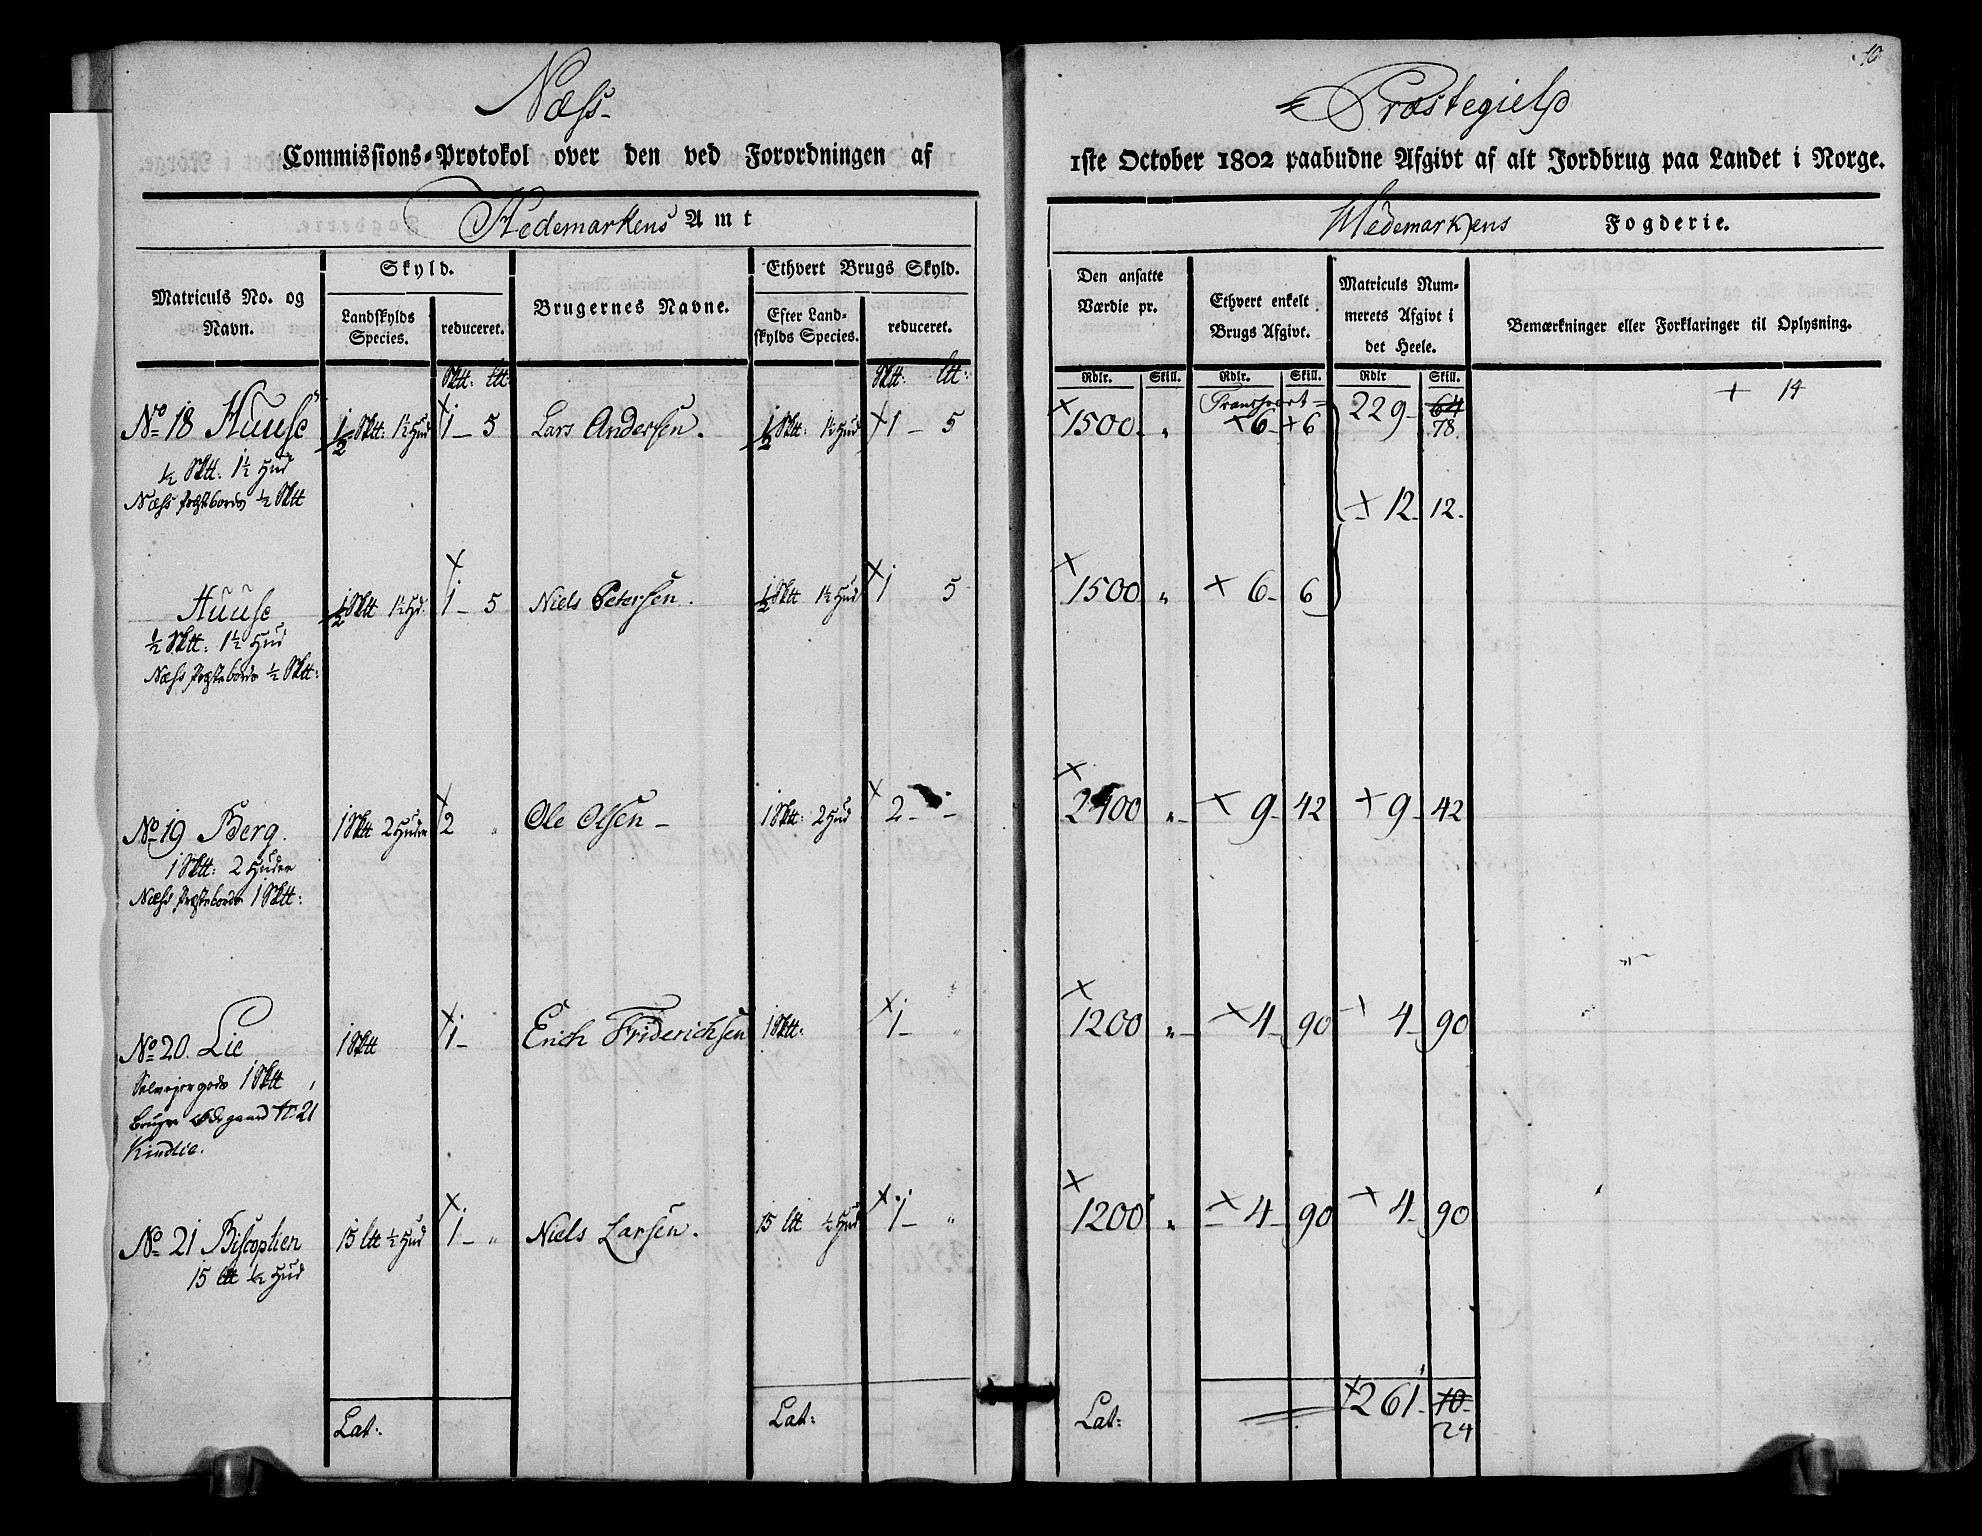 Næss
Commissions-Protokol over den ved Forordningen af
Hedemarkens Amt
Matriculs No. og
Navn.
Skyld.
Landskylds
Species.
reduceret.
Brugernes Navne.
Ethvert Brugs Skyld.
Efter Land-
skylds Species.
reduceret.
Sktt: ltt:
Sktt: ltt:
No 18 Huuse ½ Sktt: 1½ Hud 1 - 5 Lars Andersen. ½ Sktt: 1½ Hud 1 - 5
½ Sktt: 1½ Hud
Næss Præstebords ½ Sktt
Huuse ½ Sktt 1½ Hd. 1 - 5 Niels Petersen. ½ Sktt 1½ Hud 1 5
½ Sktt: 1½ Hud
Næss Præstebords ½ Sktt:
No 19 Berg. 1 Sktt 2 Huder 2 „ Ole Olsen - 1 Sktt: 2 Hud 2 - -
1 Sktt: 2 Huder
Næss Præstebords 1 Sktt:
No 20. Lie 1 Sktt 1 - Erich Friderichsen 1 Sktt: 1 - „
Selvejergods 1 Sktt
bruger Ødegaard No 21
Kindlie.
No 21 Biscoplien 15 ltt ½ Hud 1 - „ Niels Larsen. 15 ltt ½ Hud 1 - „
15 ltt ½ Hud
Lat: Lat:
10
Præstegield
1ste October 1802 paabudne Afgivt af alt Jordbrug paa Landet i Norge.
Hedemarkens Fogderie.
Den ansatte
Værdie pr.
Ethvert enkelt
Brugs Afgivt.
Matriculs Num-
merets Afgivt i
det Heele.
Bemærkninger eller Forklaringer til Oplysning.
Rdlr. Skill. Rdlr. Skill. Rdlr Skill.
+ 14
Transport = 229 - 64
78.
× 1500 „ × 6 - × 6
× 12 - 12 -
× 1500 „ × 6 - 6
× 2400 „ - × 9 - 42 × 9 - 42
× 1200 „ - × 4 - 90 × 4 - 90
× 1200 „ × 4 - 90 × 4 - 90
Lat: × 261 - 10
24